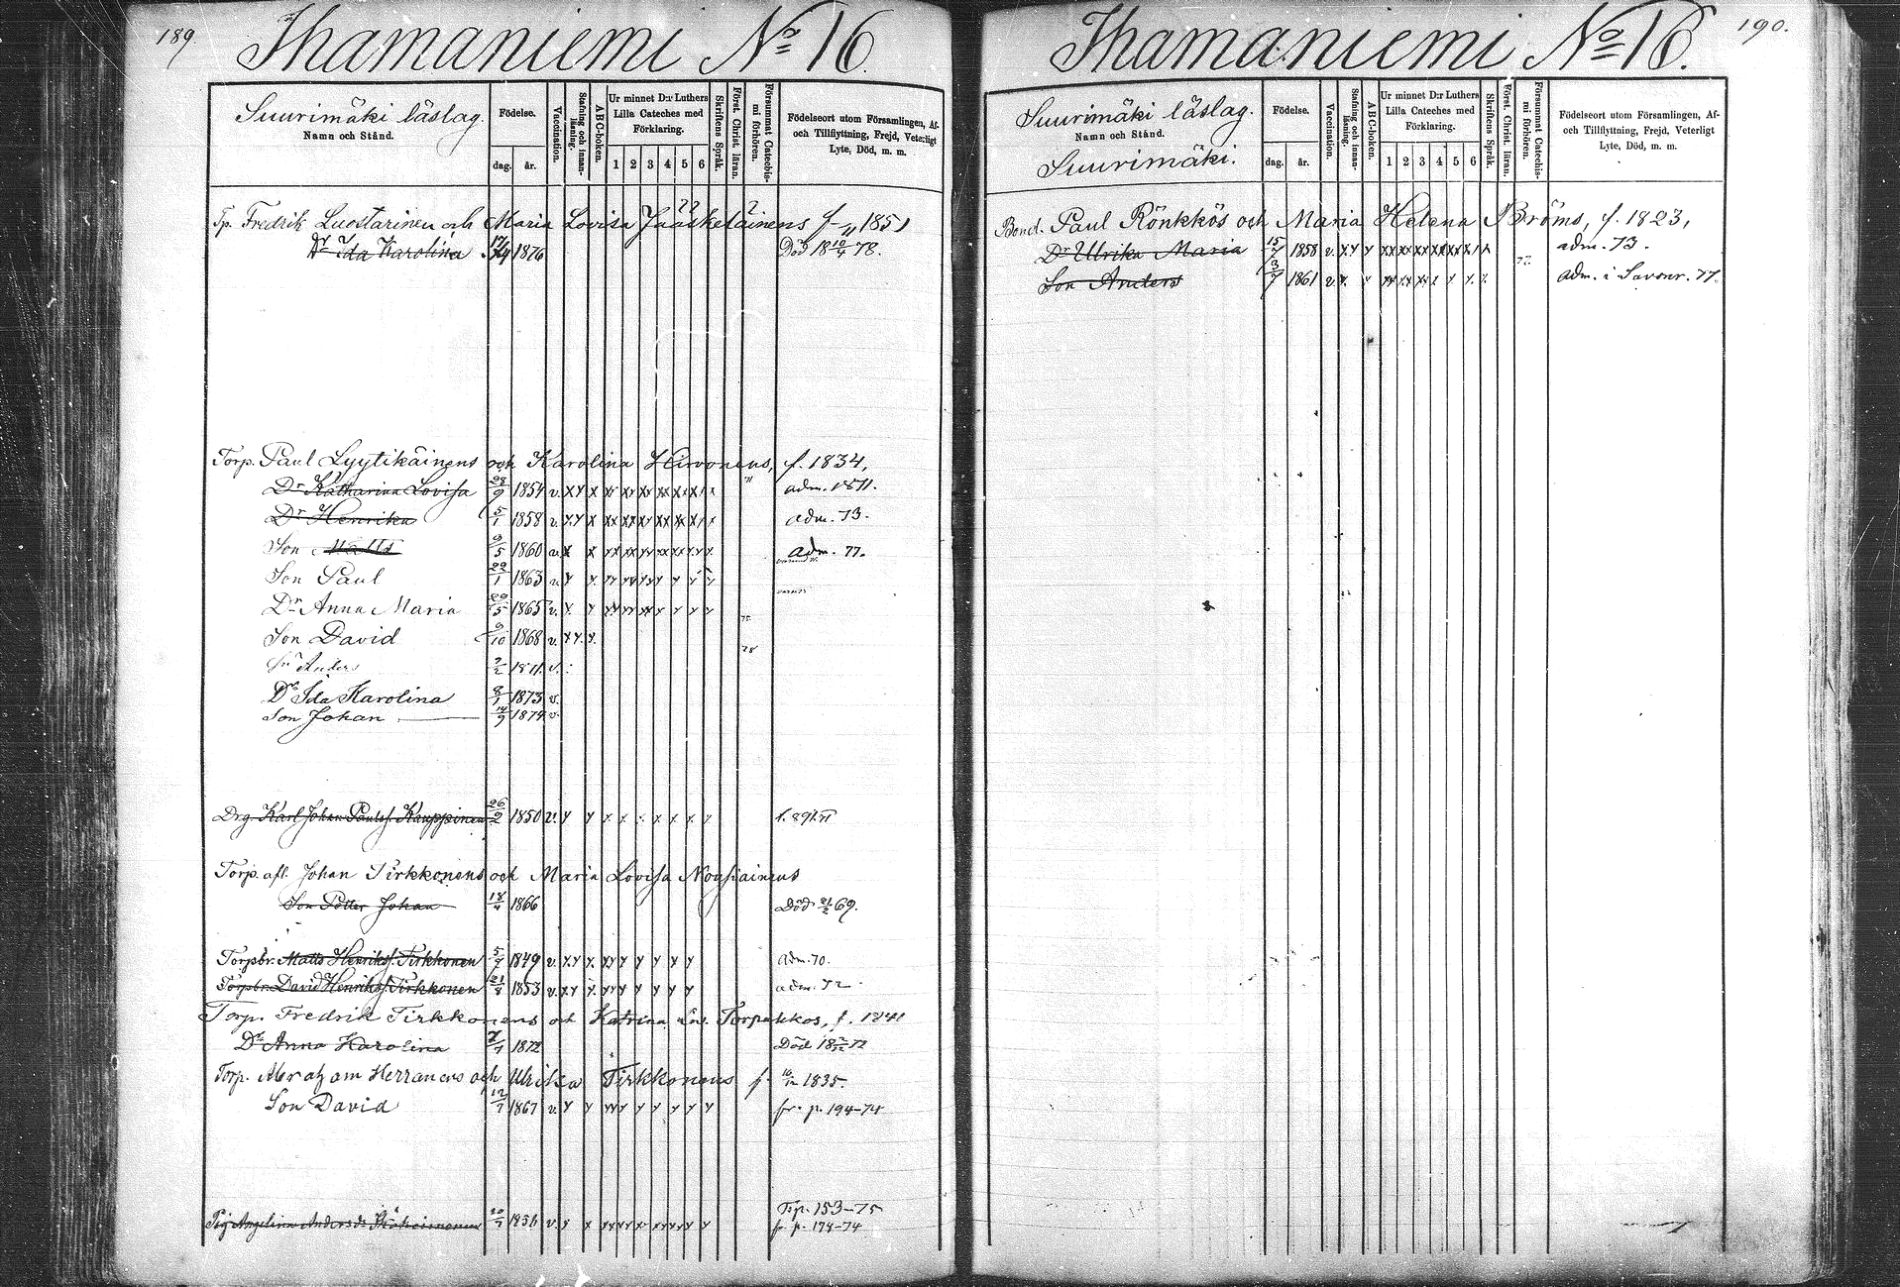 189
Ihamaniemi No 16.
Suurimäki läslag.
Namn och Stånd.
Födelse.
dag. år.
Vaccination.
Stafning och innan-läsning.
ABC-boken.
Ur minnet D:r Luthers Lilla Cateches med Förklaring.
1 2 3 4 5 6
Skriftens Språk.
Först. Christ. läran.
Försummat Catechis-mi förhören.
Födelseort utom Församlingen, Af- och Tillflyttning, Frejd, Veterligt Lyte, Död, m. m.
Tp. Fredrik Luostarinen och Maria Lovisa Jääskeläinens f. 1851
Dr Ida Karolina 1876 Död 18 10/4 78.
Torp. Paul Lyytikäinens och Karolina Hirvonens, f. 1834,
Dr Katharina Lovisa 28/9 1854 v. adm. 1871.
Dr Henrika 5/1 1858 v. adm. 73.
Son Matts 9/5 1860 v. adm. 77.
Son Paul 22/1 1863 v.
Dr Anna Maria 20/5 1865 v.
Son David 9/10 1868 v.
Sn Anders 7/2 1871 v.
Dr Ida Karolina 8/1 1873 v.
Son Johan 14/9 1874 v.
Drg. Karl Johan Paulss. Kauppinen 26/2 1850 v.
Torp. afl. Johan Tirkkonens och Maria Lovisa Nousiainens
Son Petter Johan 18/4 1866 Död 21/2 69.
Torpbr. Matts Henrikss. Tirkkonen 5/9 1849 v. adm. 70.
Torpbr. David Henrikss. Tirkkonen 21/8 1853 v. adm. 72.
Torp. Fredrik Tirkkonens och Katrina Torpakkos, f. 1841
Dr Anna Karolina 7/7 1872 Död 18 72
Torp. Abraham Herranens och Ulrika Tirkkonens f. 10/12 1835.
Son David 12/7 1867 v. fr. p. 194-74
Pig. Angelina Andersdr 1856 v. T. p. 153-75
fr. p. 174-74
190.
Ihamaniemi No 16.
Suurimäki läslag.
Namn och Stånd.
Suurimäki.
Födelse.
dag. år.
Vaccination.
Stafning och innan-läsning.
ABC-boken.
Ur minnet D:r Luthers Lilla Cateches med Förklaring.
1 2 3 4 5 6
Skriftens Språk.
Vörst. Christ. läran.
Försummat Catechis-mi förhören.
Födelseort utom Församlingen, Af- och Tillflyttning, Frejd, Veterligt Lyte, Död, m. m.
Bond. Paul Rönkkös och Maria Helena Bröms, f. 1823,
Dr Ulrika Maria 15/7 1858 v. adm. 73.
Son Anders 3/7 1861 v. adm. i Savonr. 77.